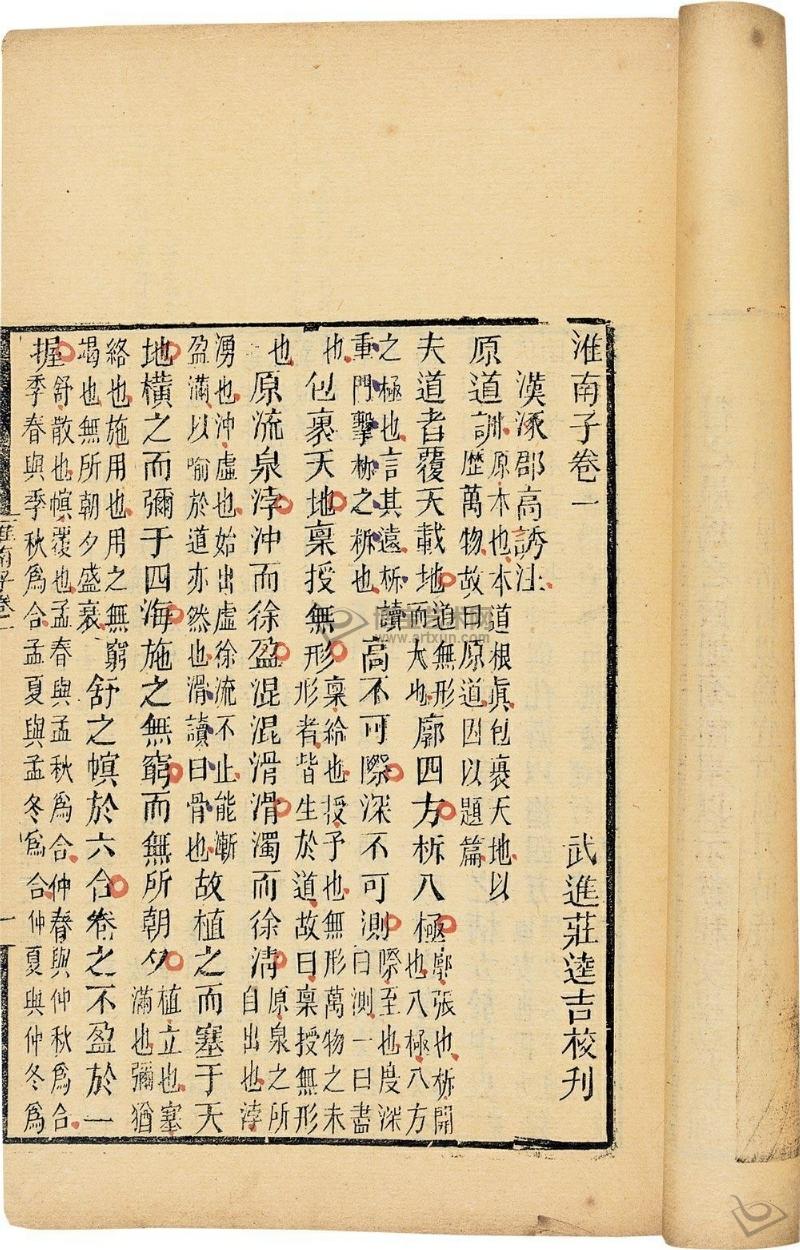 淮南子卷一 武進莊逵吉校刊
漢涿郡高誘注
原道訓原本也本道根眞包裹天地以歷萬物故曰原道因以題篇
夫道者覆天載地道無形而大也廓四方柝八極廓張也柝開也八極八方
之極也言其遠柝讀重門擊柝之柝也高不可際深不可測際至也度深曰測一曰盡
也包裹天地稟授無形稟給也授予也無形萬物之未形者皆生於道故曰稟授無形
也原流泉浡沖而徐盈混混滑滑濁而徐清原泉之所自出也浡
湧也沖虛也始出虛徐流不止能漸盈滿以喻於道亦然也滑讀曰骨也故植之而塞于天
地橫之而彌于四海施之無窮而無所朝夕植立也塞滿也彌猶
絡也施用也用之無窮竭也無所朝夕盛衰舒之幎於六合卷之不盈於一
握舒散也幎覆也孟春與孟秋爲合仲春與仲秋爲合季春與季秋爲合孟夏與孟冬爲合仲夏與仲冬爲
淮南子卷一 一
www.artxun.com